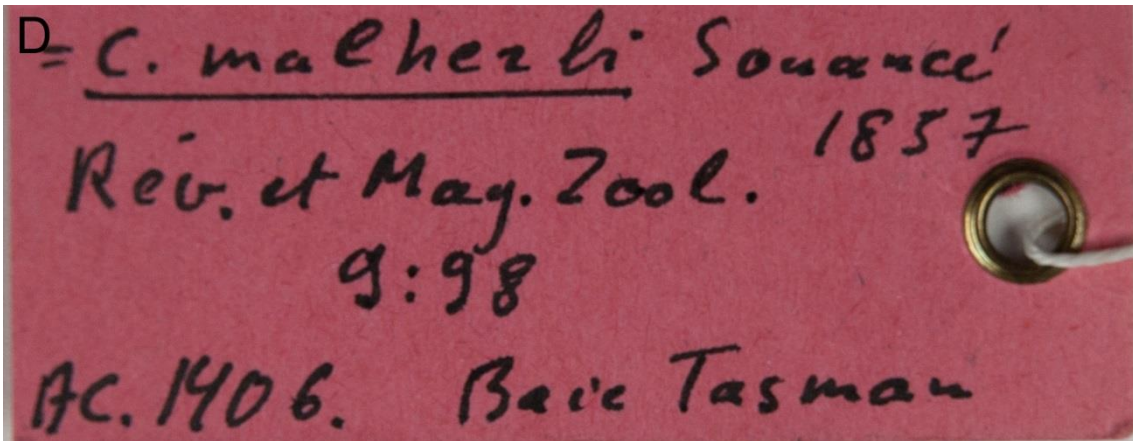 D
= C. malherbi Souancé
1857
Rév. et Mag. Zool.
9:98
AC. 1406. Baie Tasman